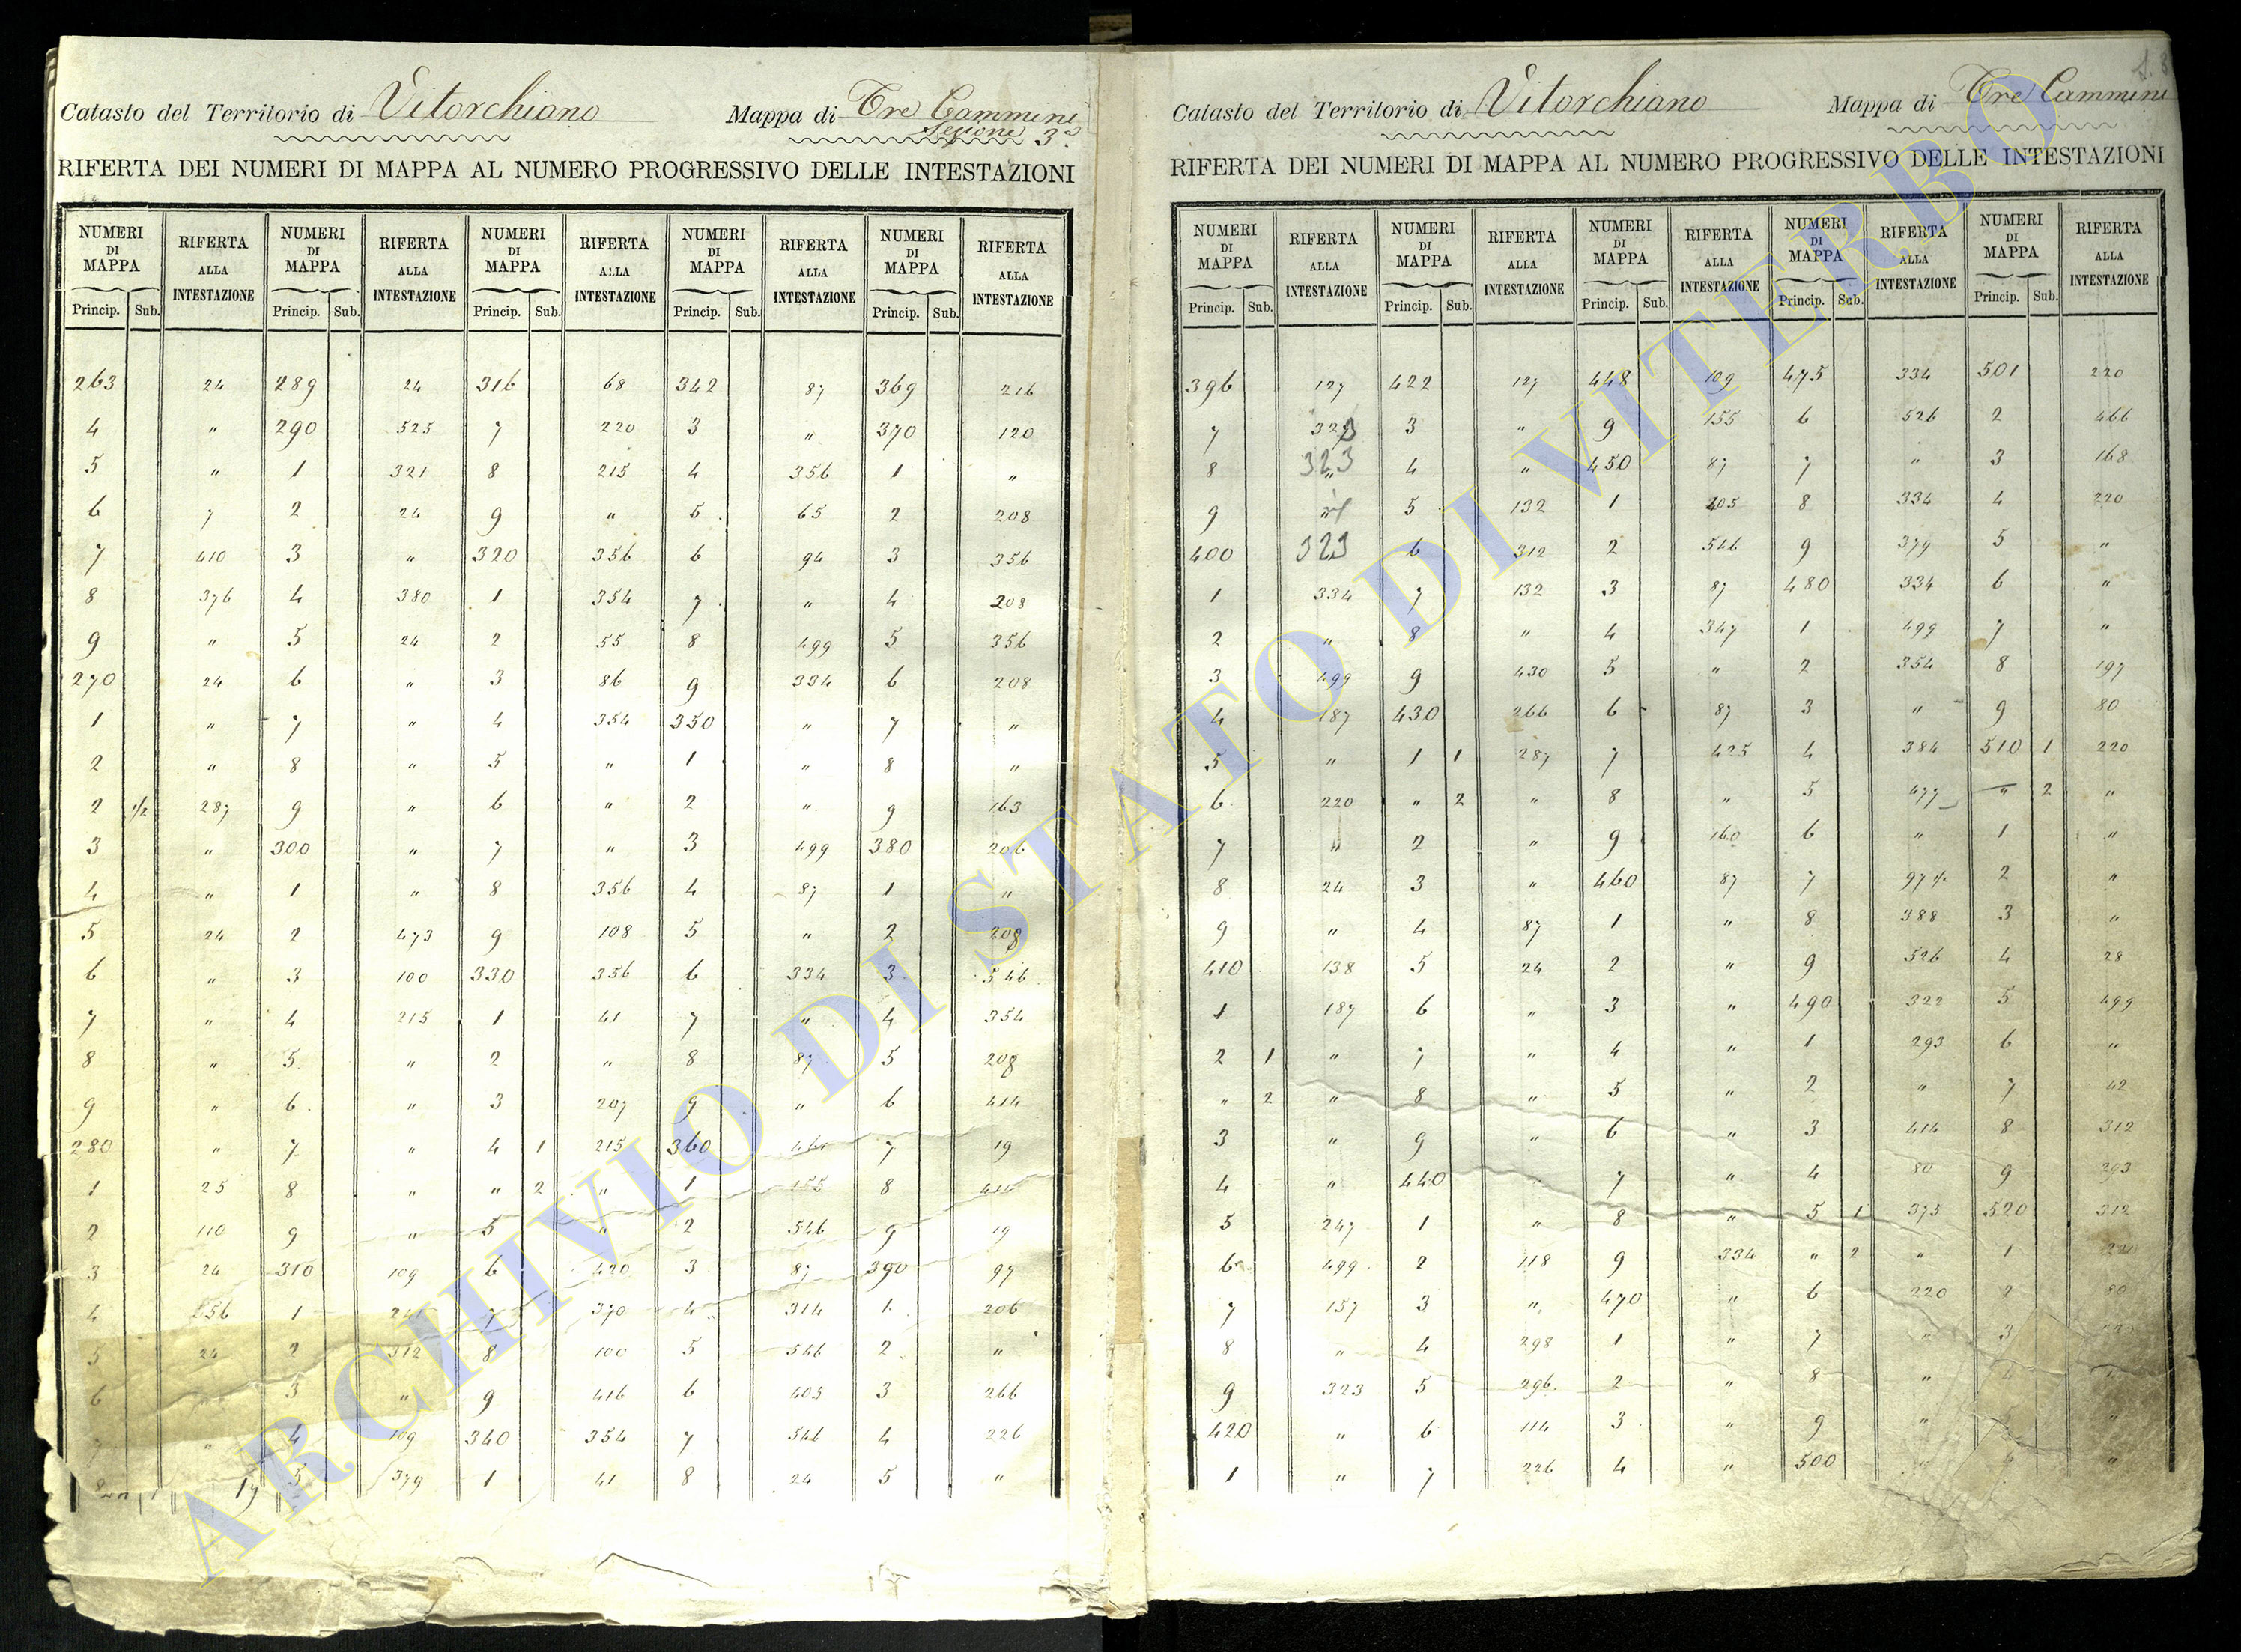 Catasto del Territorio di Vitorchiano Mappa di Tre Cammini
Sezione 3ª
RIFERTA DEI NUMERI DI MAPPA AL NUMERO PROGRESSIVO DELLE INTESTAZIONI
NUMERI DI MAPPA RIFERTA ALLA INTESTAZIONE NUMERI DI MAPPA RIFERTA ALLA INTESTAZIONE NUMERI DI MAPPA RIFERTA ALLA INTESTAZIONE NUMERI DI MAPPA RIFERTA ALLA INTESTAZIONE NUMERI DI MAPPA RIFERTA ALLA INTESTAZIONE
Princip. Sub. Princip. Sub. Princip. Sub. Princip. Sub. Princip. Sub.
263 24 289 24 316 68 342 87 369 216
4 " 290 525 7 220 3 " 370 120
5 " 1 321 8 215 4 356 1 "
6 7 2 24 9 " 5 65 2 208
7 410 3 " 320 356 6 94 3 356
8 376 4 380 1 354 7 " 4 208
9 " 5 24 2 55 8 499 5 356
270 24 6 " 3 86 9 334 6 208
1 " 7 " 4 354 350 " 7 "
2 " 8 " 5 " 1 " 8 "
2 1/2 287 9 " 6 " 2 " 9 163
3 " 300 " 7 " 3 499 380 206
4 " 1 " 8 356 4 87 1 "
5 24 2 473 9 108 5 " 2 208
6 " 3 100 330 356 6 334 3 546
7 " 4 215 1 41 7 " 4 354
8 " 5 " 2 " 8 87 5 208
9 " 6 " 3 207 9 " 6 414
280 " 7 " 4 1 215 360 461 7 19
1 25 8 " " 2 " 1 155 8 414
2 110 9 " 5 " 2 546 9 19
3 24 310 109 6 420 3 87 390 97
4 356 1 241 7 370 4 314 1 206
5 24 2 312 8 100 5 546 2 "
6 3 " 9 416 6 405 3 266
" 4 109 340 354 7 546 4 226
19 5 379 1 41 8 24 5 "
Catasto del Territorio di Vitorchiano Mappa di Tre Cammini
RIFERTA DEI NUMERI DI MAPPA AL NUMERO PROGRESSIVO DELLE INTESTAZIONI
NUMERI DI MAPPA RIFERTA ALLA INTESTAZIONE NUMERI DI MAPPA RIFERTA ALLA INTESTAZIONE NUMERI DI MAPPA RIFERTA ALLA INTESTAZIONE NUMERI DI MAPPA RIFERTA ALLA INTESTAZIONE NUMERI DI MAPPA RIFERTA ALLA INTESTAZIONE
Princip. Sub. Princip. Sub. Princip. Sub. Princip. Sub. Princip. Sub.
396 127 422 127 448 109 475 334 501 220
7 323 3 " 9 155 6 526 2 466
8 323 4 " 450 87 7 " 3 168
9 5 132 1 405 8 334 4 220
400 323 6 312 2 546 9 379 5 "
1 334 7 132 3 87 480 334 6 "
2 " 8 " 4 347 1 499 7 "
3 499 9 430 5 " 2 354 8 197
4 187 430 266 6 87 3 " 9 80
5 " 1 1 287 7 425 4 384 510 1 220
6 220 " 2 " 8 " 5 477 " 2 "
7 " 2 " 9 160 6 " 1 "
8 24 3 " 460 87 7 97 1/2 2 "
9 " 4 87 1 " 8 388 3 "
410 138 5 24 2 " 9 526 4 28
1 187 6 " 3 " 490 322 5 499
2 1 " 7 " 4 " 1 293 6 "
" 2 " 8 " 5 " 2 " 7 42
3 " 9 " 6 " 3 414 8 312
4 " 440 7 " 4 80 9 293
5 247 1 " 8 " 5 1 375 520 312
6 499 2 118 9 334 " 2 " 1
7 157 3 " 470 " 6 220 2 80
8 " 4 298 1 " 7 " 3
9 323 5 296 2 " 8 "
420 " 6 114 3 " 9 " "
1 " 7 226 4 " 500 "
ARCHIVIO DI STATO DI VITERBO